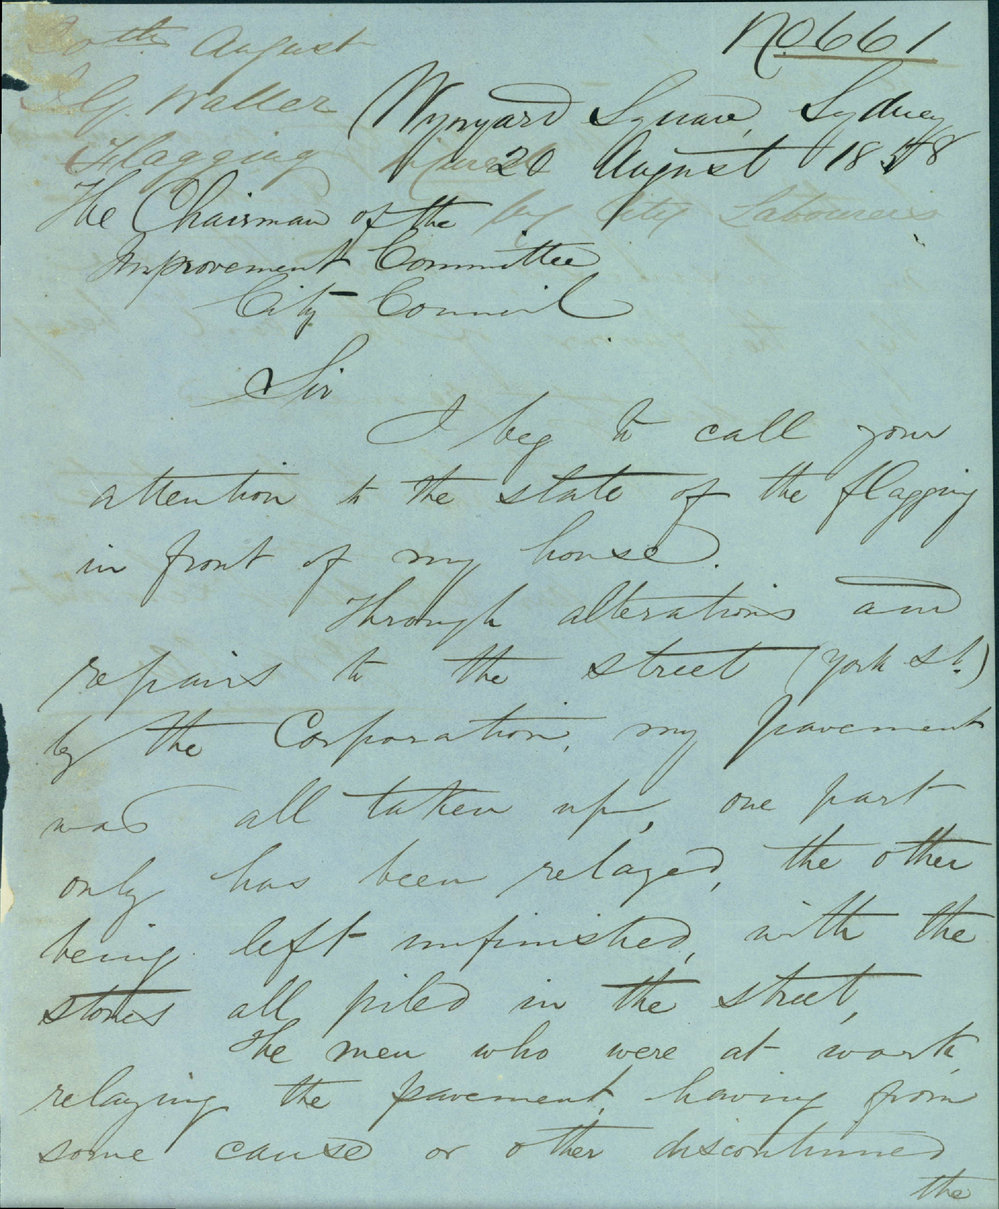 No 661
20th August
G. Waller
Flagging
by City Labourers
Wynyard Square, Sydney
20 August 1858
The Chairman of the
Improvement Committee
City Council
Sir
I beg to call your
attention to the state of the flagging
in front of my house.
Through alterations and
repairs to the street (York St.)
by the Corporation, my pavement
was all taken up, one part
only has been relayed, the other
being left unfinished, with the
stones all piled in the street,
The men who were at work,
relaying the pavement, having from
some cause or other discontinued
the